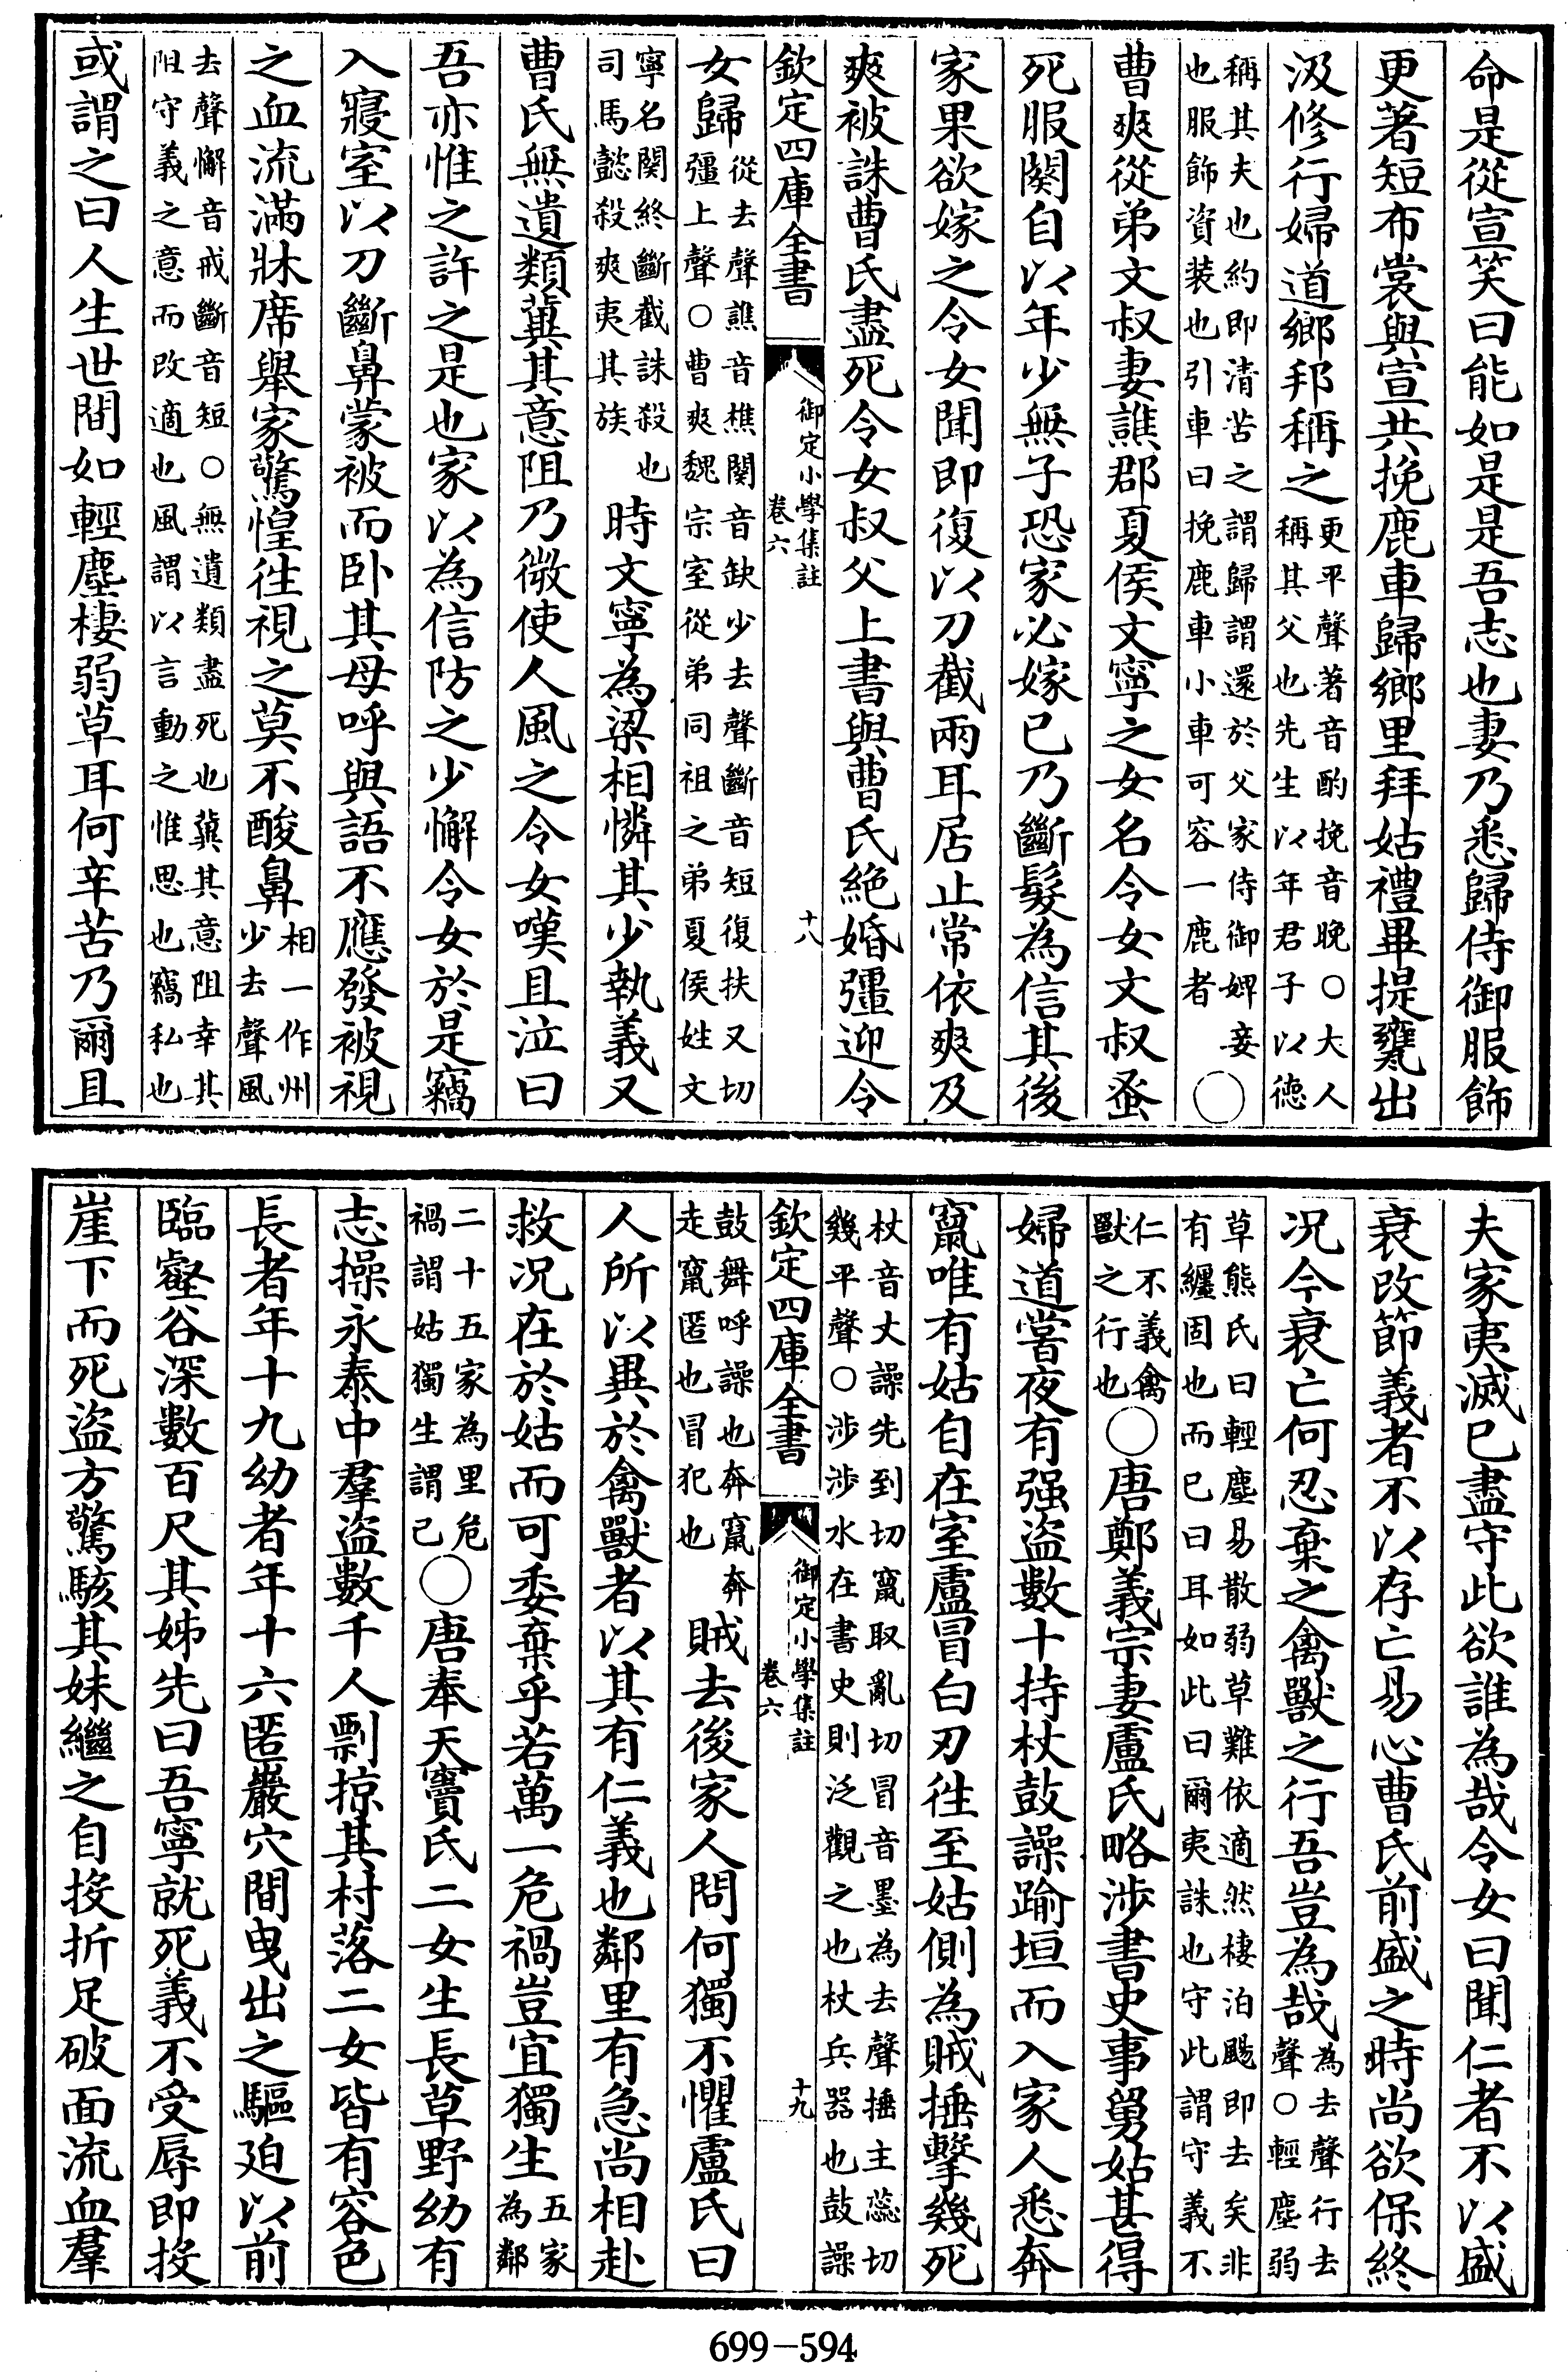 命是從宣笑曰能如是是吾志也妻乃悉歸侍御服飾
更著短布裳與宣共挽鹿車歸鄉里拜姑禮畢提甕出
汲修行婦道鄉邦稱之更平聲著音酌挽音晚○大人
稱其父也先生以年君子以徳
稱其夫也約即清苦之謂歸謂還於父家侍御婢妾
也服飾資装也引車曰挽鹿車小車可容一鹿者○
曹爽從弟文叔妻譙郡夏侯文寧之女名令女文叔蚤
死服闋自以年少無子恐家必嫁已乃斷髮為信其後
家果欲嫁之令女聞即復以刀截兩耳居止常依爽及
爽被誅曹氏盡死令女叔父上書與曹氏絶婚彊迎令
欽定四庫全書
御定小學集註
卷六
十八
女歸從去聲譙音樵闋音缺少去聲斷音短復扶又切
彊上聲○曹爽魏宗室從弟同祖之弟夏侯姓文
寧名闋終斷截誅殺也
司馬懿殺爽夷其族
時文寧為梁相憐其少執義又
曹氏無遺類冀其意阻乃微使人風之令女嘆且泣曰
吾亦惟之許之是也家以為信防之少懈令女於是竊
入寢室以刀斷鼻蒙被而卧其母呼與語不應發被視
之血流滿牀席舉家驚惶徃視之莫不酸鼻相一作州
少去聲風
去聲懈音戒斷音短○無遺類盡死也冀其意阻幸其
阻守義之意而改適也風謂以言動之惟思也竊私也
或謂之曰人生世間如輕塵棲弱草耳何辛苦乃爾且
夫家夷滅已盡守此欲誰為哉令女曰聞仁者不以盛
衰改節義者不以存亡易心曹氏前盛之時尚欲保終
况今衰亡何忍棄之禽獸之行吾豈為哉為去聲行去
聲○輕塵弱
草熊氏曰輕塵易散弱草難依適然棲泊颺即去矣非
有纏固也而已曰耳如此曰爾夷誅也守此謂守義不
仁不義禽
獸之行也
○唐鄭義宗妻盧氏略涉書史事舅姑甚得
婦道嘗夜有强盗數十持杖鼓譟踰垣而入家人悉奔
竄唯有姑自在室盧冒白刃徃至姑側為賊捶擊幾死
杖音丈譟先到切竄取亂切冒音墨為去聲捶主蕊切
幾平聲○涉涉水在書史則泛觀之也杖兵器也鼓譟
欽定四庫全書
御定小學集註
卷六
十九
鼓舞呼譟也奔竄奔
走竄匿也冒犯也
賊去後家人問何獨不懼盧氏曰
人所以異於禽獸者以其有仁義也鄰里有急尚相赴
救况在於姑而可委棄乎若萬一危禍豈宜獨生五家
為鄰
二十五家為里危
禍謂姑獨生謂己
○唐奉天竇氏二女生長草野幼有
志操永泰中羣盜數千人剽掠其村落二女皆有容色
長者年十九幼者年十六匿巖穴間曳出之驅迫以前
臨壑谷深數百尺其姊先曰吾寧就死義不受辱即投
崖下而死盗方驚駭其妹繼之自投折足破面流血羣
699-594